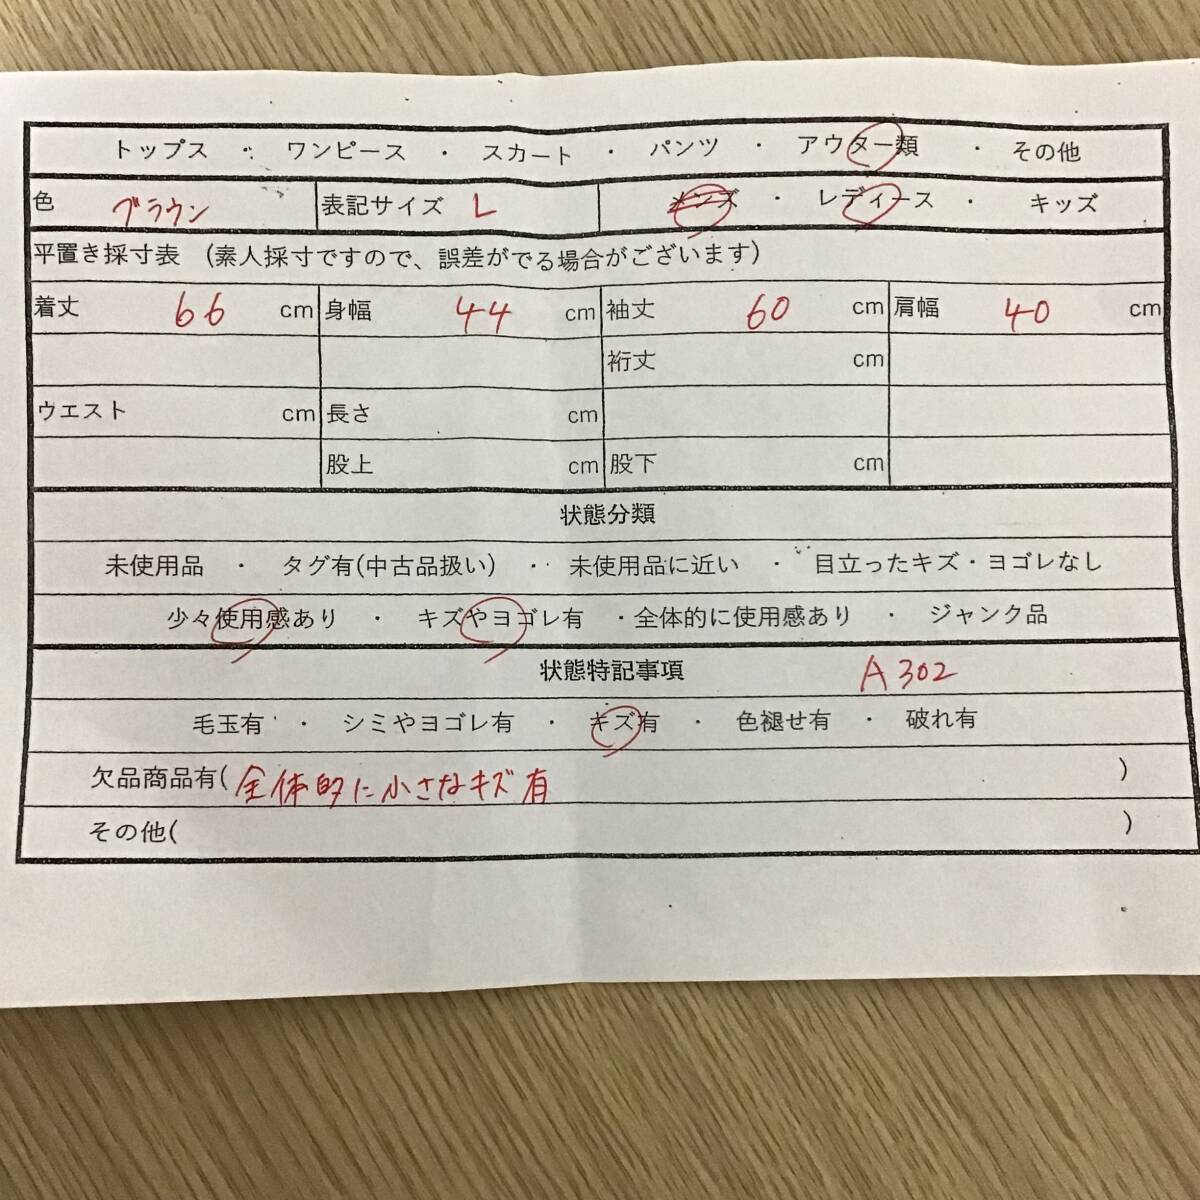 トップス ・ ワンピース ・ スカート ・ パンツ ・ アウター類 ・ その他
色 ブラウン 表記サイズ L メンズ ・ レディース ・ キッズ
平置き採寸表 (素人採寸ですので、誤差がでる場合がございます)
着丈 66 cm 身幅 44 cm 袖丈 60 cm 肩幅 40 cm
裄丈 cm
ウエスト cm 長さ cm
股上 cm 股下 cm
状態分類
未使用品 ・ タグ有(中古品扱い) ・ 未使用品に近い ・ 目立ったキズ・ヨゴレなし
少々使用感あり ・ キズやヨゴレ有 ・全体的に使用感あり ・ ジャンク品
状態特記事項 A302
毛玉有 ・ シミやヨゴレ有 ・ キズ有 ・ 色褪せ有 ・ 破れ有
欠品商品有(全体的に小さなキズ有 )
その他( )